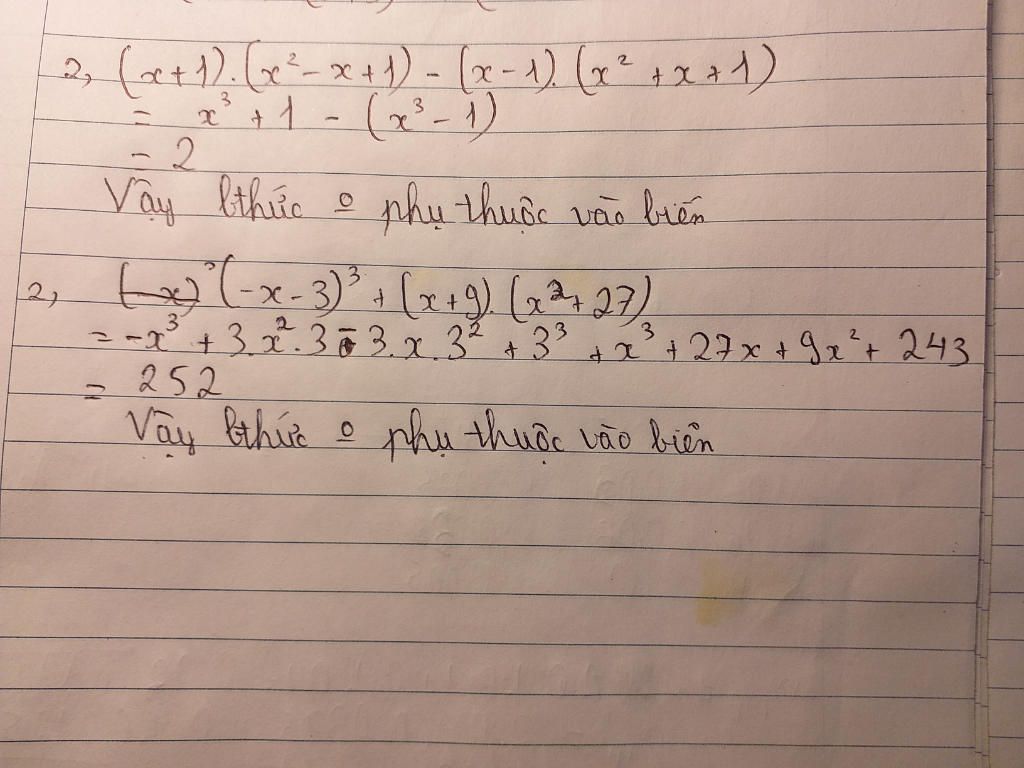 2, (x+1).(x² - x + 1) - (x - 1).(x² + x + 1)
= x³ + 1 - (x³ - 1)
= 2
Vậy bthức o phụ thuộc vào biến
2, (-x)³ (-x-3)³ + (x+9).(x²+27)
= -x³ + 3.x².3 - 3.x.3² + 3³ + x³ + 27x + 9x² + 243
= 252
Vậy bthức o phụ thuộc vào biến